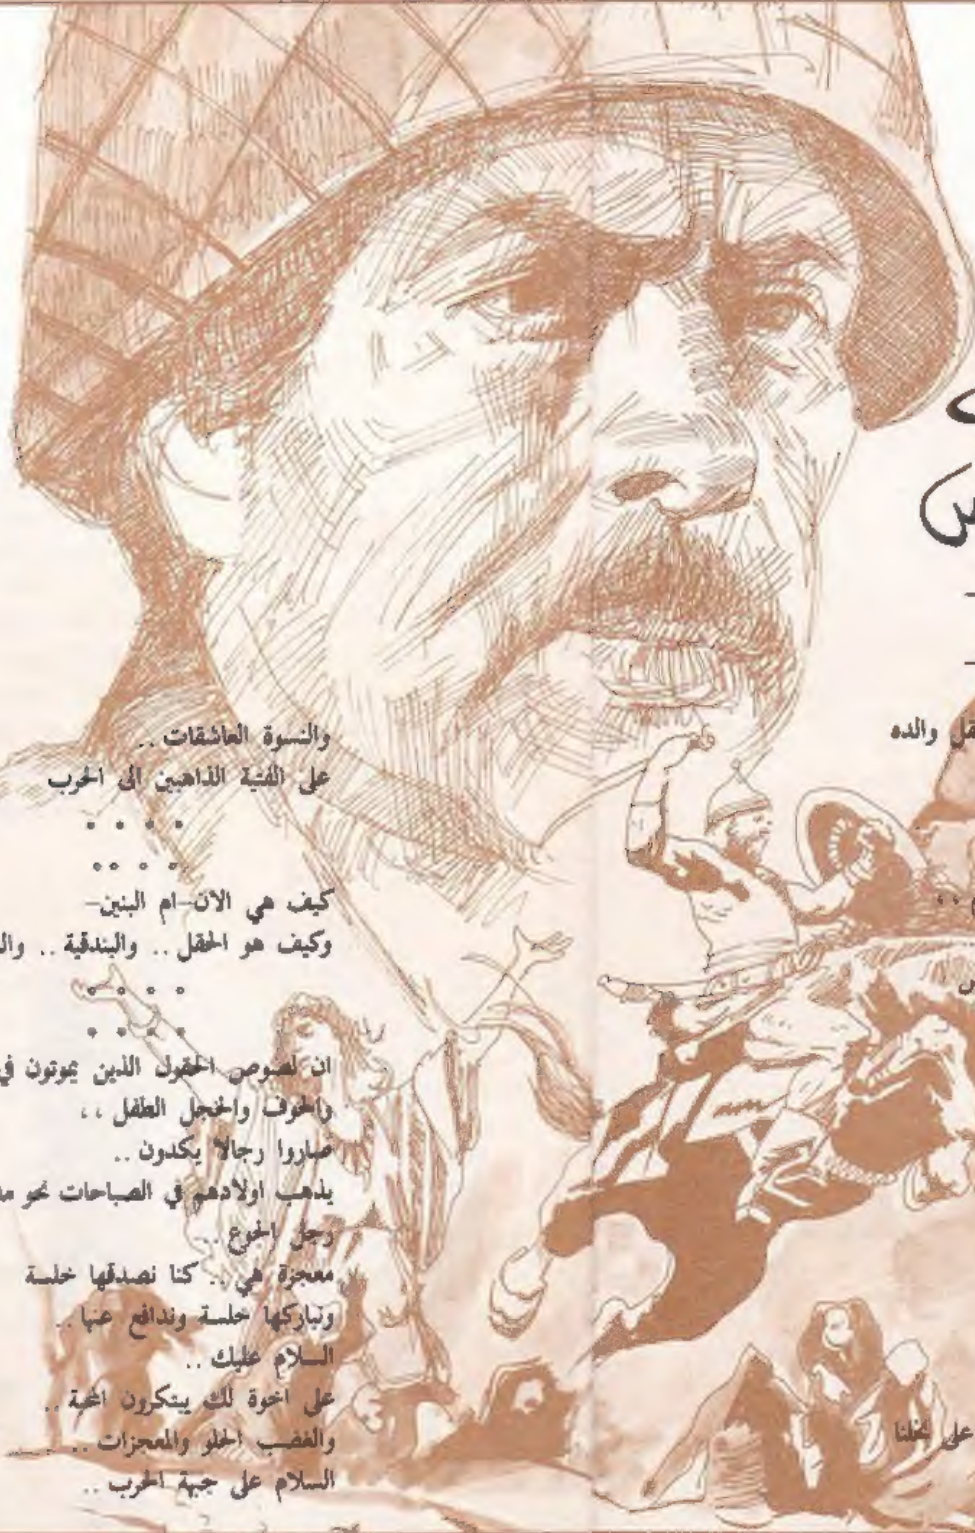 س
ـقل والده
..
س
على نخلنا
والنسوة العاشقات ..
على الفتية الذاهبين الى الحرب
• • • •
• • • •
كيف هي الآن-ام البنين-
وكيف هو الحقل .. والبندقية .. والـ
• • • •
• • • •
ان لصوص الحقول الذين يموتون في
والخوف والخجل الطفل ،،
صاروا رجالا يكدون ..
يذهب اولادهم في الصباحات نحو مد
رجل الجوع ..
معجزة هي .. كنا نصدقها خلسة
ونباركها خلسة وندافع عنها ..
السلام عليك ..
على اخوة لك يبتكرون المحبة ..
والغضب الحلو والمعجزات ..
السلام على جبهة الحرب ..